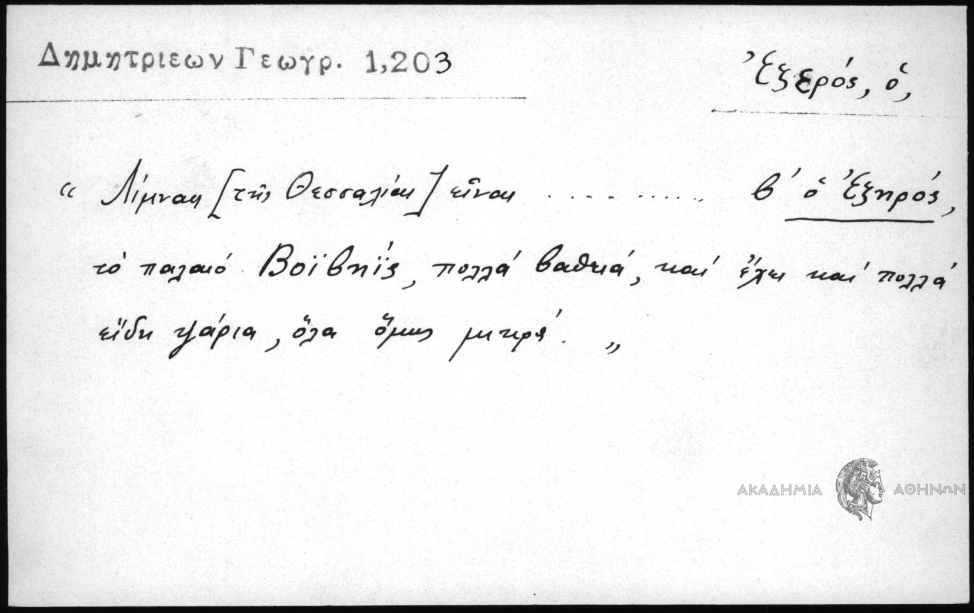 Δημητριεων Γεωγρ. 1,203
Ἐξερός, ὁ,
“ Λίμναι [τῆς Θεσσαλίας] εἶναι .......... β' ὁ Ἐξηρός,
τὸ παλαιό Βοϊβηΐς, πολλά βαθειά, καί ἔχει καί πολλά
εἴδη ψάρια, ὅλα ὅμως μικρά. „
ΑΚΑΔΗΜΙΑ ΑΘΗΝΩΝ